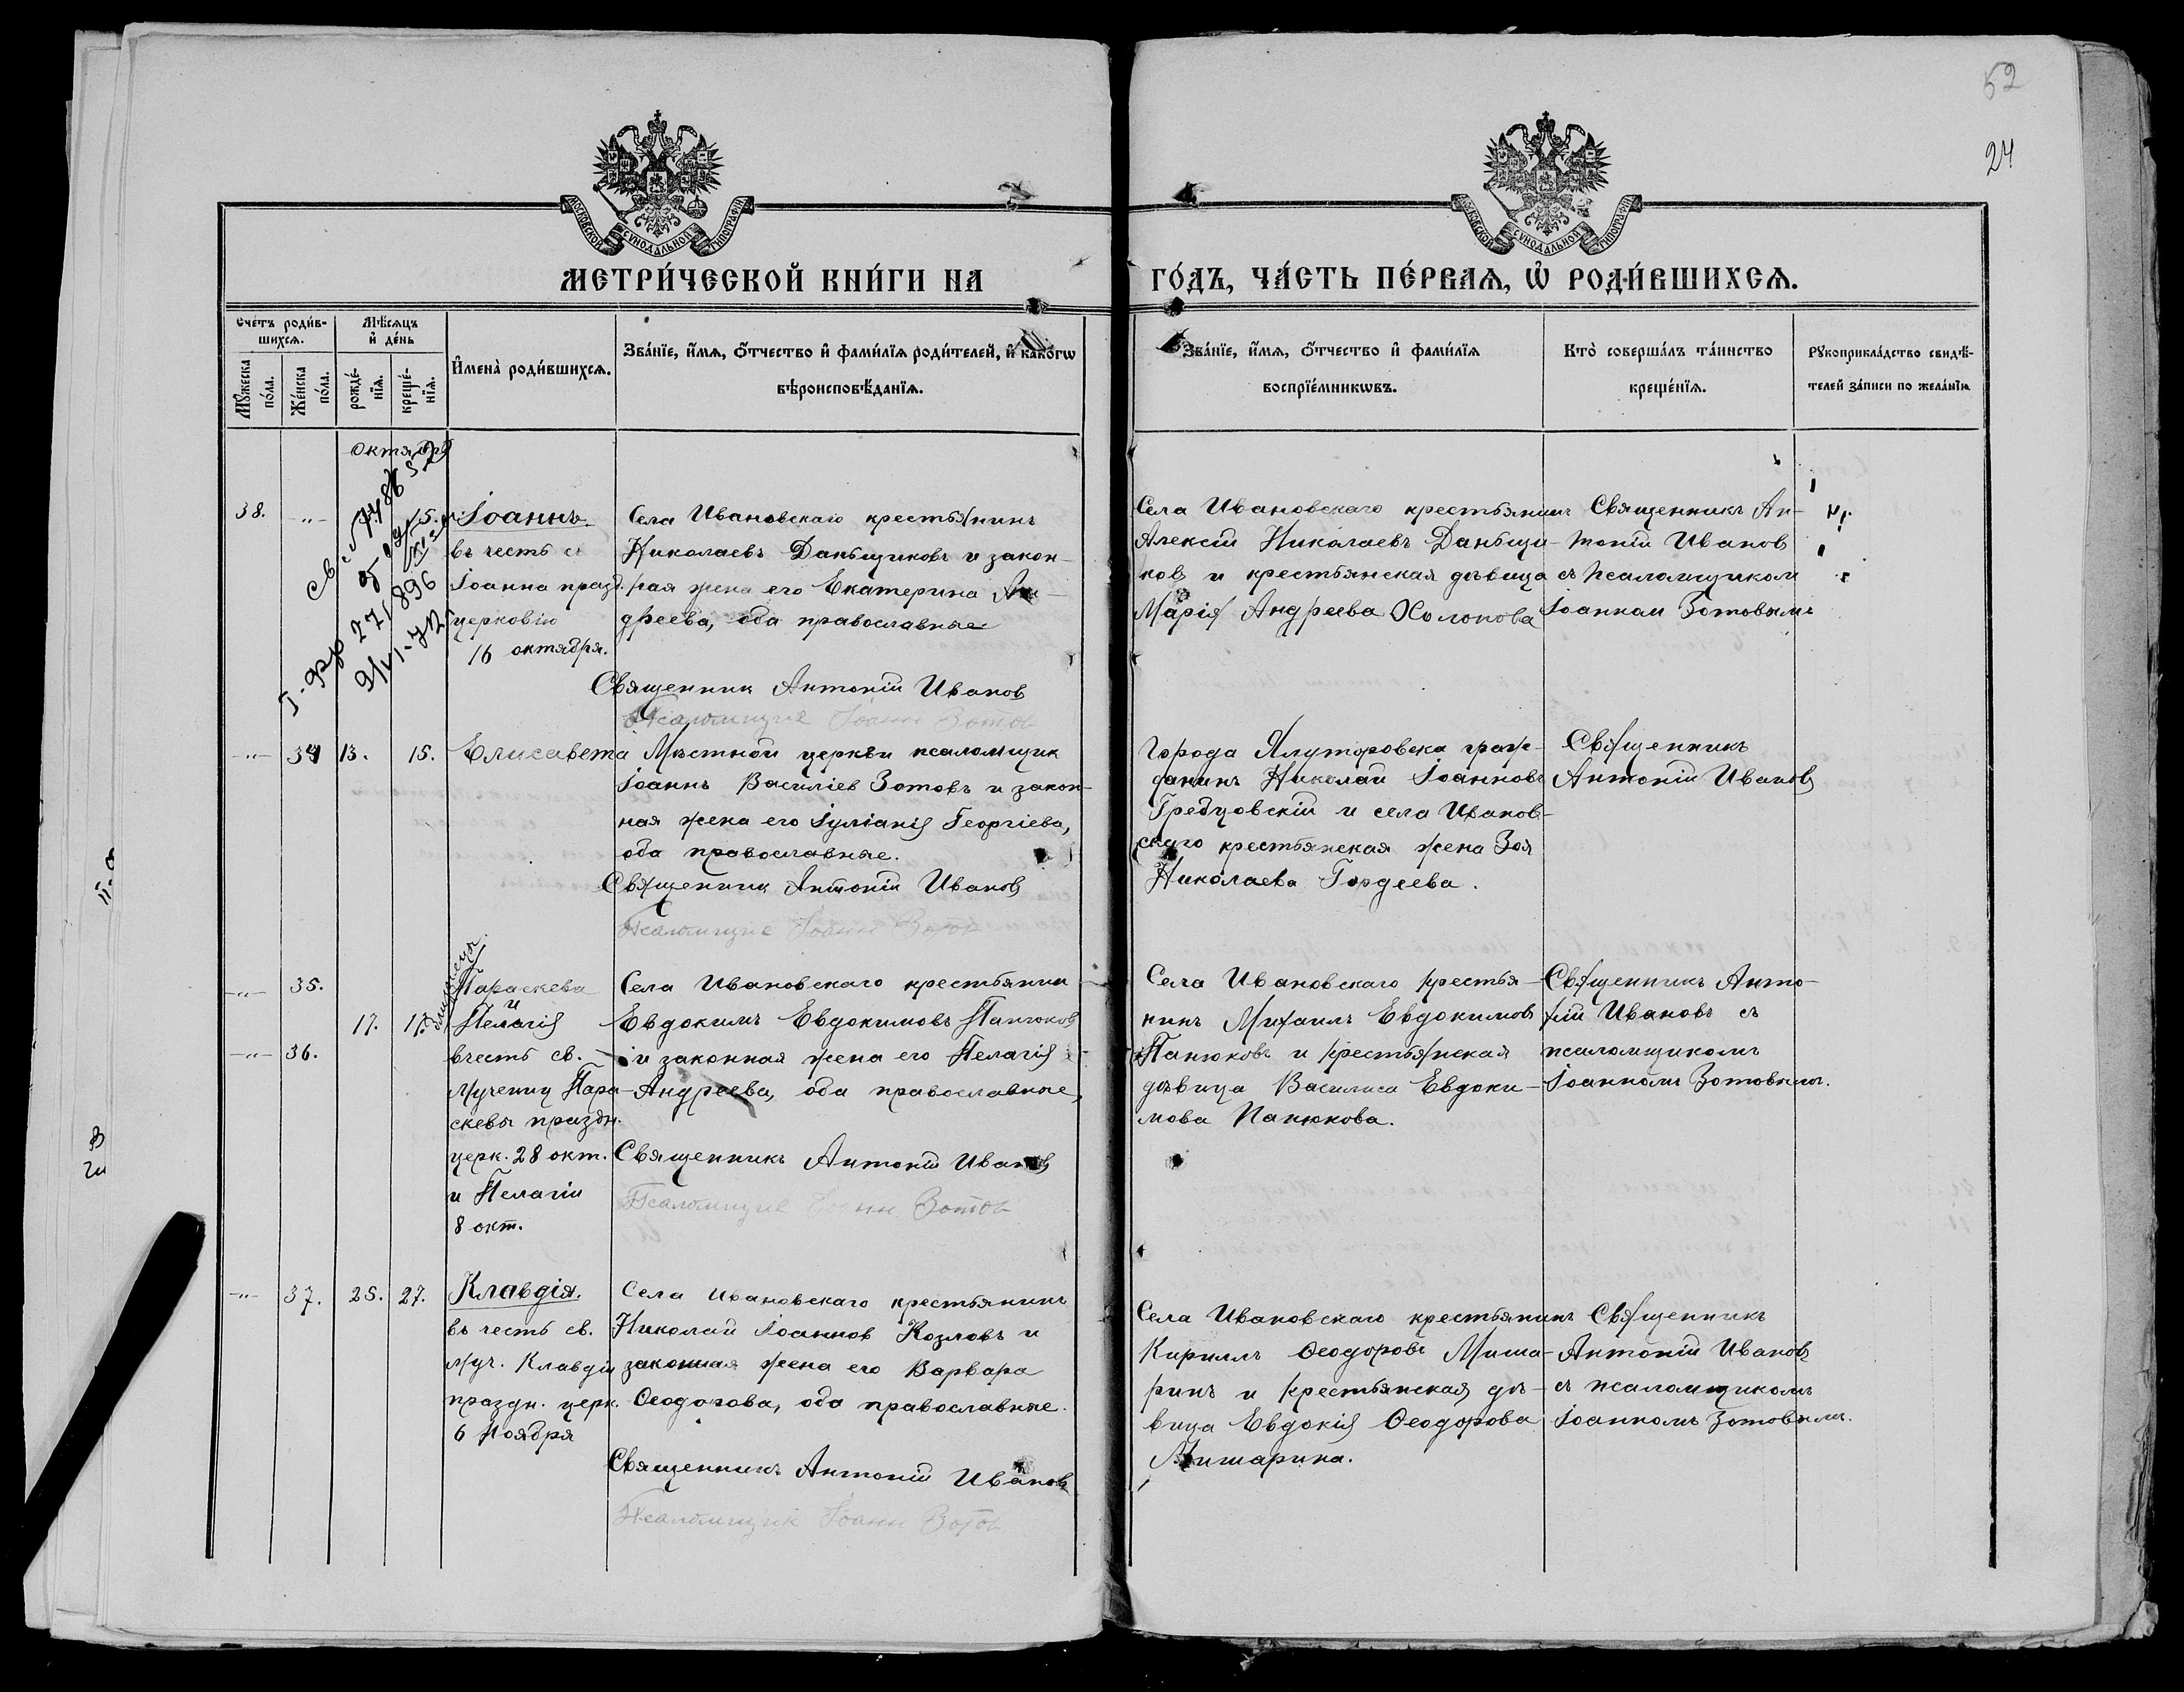 52
24
МОСКОВСКОЙ СУНОДАЛЬНОЙ ТИПОГРАФІИ
МОСКОВСКОЙ СУНОДАЛЬНОЙ ТИПОГРАФІИ
МЕТРИ́ЧЕСКОЙ КНИ́ГИ НА
ГО́ДЪ, ЧА́СТЬ ПЕ́РВАѦ, Ѡ РОДИ́ВШИХСѦ.
Сче́тъ роди́в-
шихсѧ.
Мѣ́сѧцъ
и де́нь
Мꙋжеска
по́ла.
Же́нска
по́ла.
рожде́-
нїѧ.
креще́-
нїѧ.
Имена̀ роди́вшихсѧ.
Зва́нїе, и́мѧ, ѻ́тчество и фами́лїѧ роди́телей, и како́гѡ
вѣроисповѣ́данїѧ.
Зва́нїе, и́мѧ, ѻ́тчество и фами́лїѧ
воспрїе́мникѡвъ.
Кто̀ соверша́лъ та́инство
креще́нїѧ.
Рꙋкоприкла́дство свидѣ́-
телей за́писи по жела́нїю
Октябрь
38. -"- 15. Іоаннъ.
въ честь св
Іоанна празд.
церковію
16 октября.
Села Ивановскаго крестьянинъ
Николаевъ Даньщиковъ и закон-
ная жена его Екатерина Ан-
дреева, оба православные
Священник Антоній Иванов
Псаломщик Іоанн Зотов
Села Ивановскаго крестьянинъ
Алексій Николаевъ Даньщи-
ков и крестьянская дѣвица
Марія Андреева Холопова
Священникъ Ан-
тоній Иванов
съ псаломщиком
Іоанном Зотовымъ
-"- 34 13. 15. Елисавета
Мѣстной церкви псаломщик
Іоаннъ Василіев Зотовъ и закон-
ная жена его Іуліанія Георгіева,
оба православные.
Священник Антоній Иванов
Псаломщик Іоанн Зотов
Города Ялуторовска граж-
данинъ Николай Іоанновъ
Гребцовскій и села Иванов-
скаго крестьянская жена Зоя
Николаева Гордеева.
Священникъ
Антоній Иванов
-"- 35.
-"- 36.
17. 17.
Параскева
и
Пелагія
въ честь св.
мучениц Пара-
скевы праздн.
церк. 28 окт.
и Пелагіи
8 окт.
Села Ивановскаго крестьянин
Евдокимъ Евдокимовъ Панюков
и законная жена его Пелагія
Андреева, оба православные,
Священникъ Антоній Иванов
Псаломщик Іоанн Зотов
Села Ивановскаго крестья-
нинъ Михаилъ Евдокимов
Панюковъ и крестьянская
дѣвица Василиса Евдоки-
мова Панюкова.
Священникъ Анто-
ній Ивановъ съ
псаломщикомъ
Іоанномъ Зотовымъ.
-"- 37. 25. 27. Клавдія.
въ честь св.
муч. Клавдіи
праздн. церк.
6 Ноября
Села Ивановскаго крестьянинъ
Николай Іоаннов Козловъ и
законная жена его Варвара
Ѳеодорова, оба православные.
Священникъ Антоній Иванов
Псаломщик Іоанн Зотов
Села Ивановскаго крестьянинъ
Кириллъ Ѳеодоровъ Миша-
ринъ и крестьянская дѣ-
вица Евдокія Ѳеодорова
Мишарина.
Священникъ
Антоній Иванов
съ псаломщикомъ
Іоанномъ Зотовымъ.